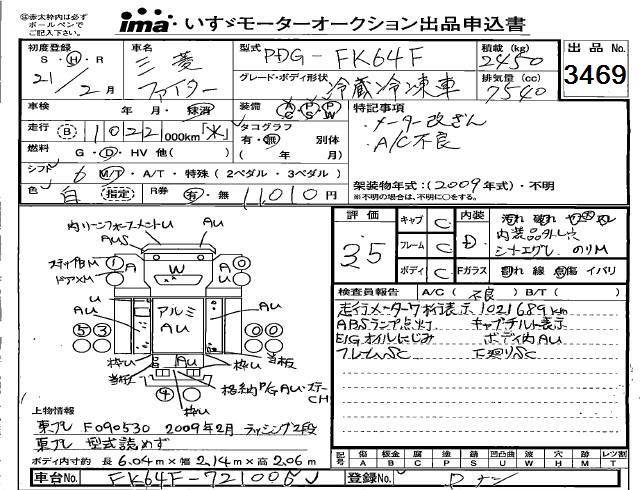 ㊟赤太枠内は必ず
ボールペンで
ご記入下さい。
ima いすゞモーターオークション出品申込書
初度登録 S・H・R 21/2月
車名 三菱 ファイター
型式 PDG-FK64F
グレード・ボディ形状 冷蔵冷凍車
積載(kg) 2450
排気量(cc) 7540
出品No. 3469
車検 年・月・抹消
装備 AC PS PW
特記事項
・メーター改ざん
・A/C不良
走行 B 1022 000km「*」
タコグラフ 有・無 別体 (年/月)
燃料 G・D・HV 他( )
シフト 6 M/T・A/T・特殊(2ペダル・3ペダル)
色 白 指定 R券 有・無 11,010円
架装物年式:(2009年式)・不明
※不明の場合は、不明に○をする。
内リーンフォースメントU AU
AUS
ステップ内M 1 A W A 0
ドアXM
U AU アルミ AU AU
5 3 0 0
枠U AU 枠U
当板 当板
4 枠U
格納P/G AU・ステーCH
評価 3.5
キャブ C
フレーム C
ボディ C
内装 D
汚れ 破れ
内装品外し穴
シートエグレ のりM
Fガラス 割れ 線 点傷 イバリ
検査員報告 A/C(不良) B/T( )
走行メーター7桁表示 1021689km
ABSランプ点灯 キャブチルト表示
E/Gオイルにじみ ボディ内AU
フレームSC 下廻りSC
上物情報
東プレ F090530 2009年2月 ラッシング2段
東プレ 型式読めず
ボディ内寸約 長6.04m×幅2.14m×高2.06m
記号 傷A 板金B 腐C 塗P サビS 凹凸曲U 波W 穴H 欠M レッツ割T
車台No. FK64F-721006
登録No. Dナシ